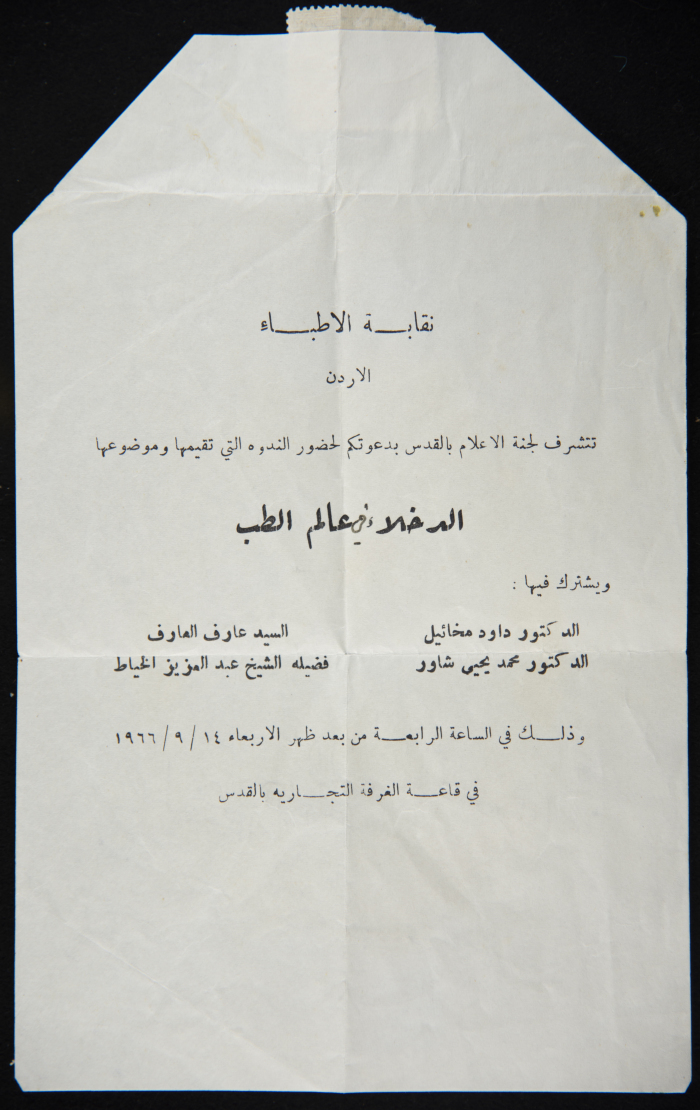 نقابة الاطباء
الاردن
تتشرف لجنة الاعلام بالقدس بدعوتكم لحضور الندوه التي تقيمها وموضوعها
الدخلاء في عالم الطب
ويشترك فيها :
الدكتور داود مخائيل السيد عارف العارف
الدكتور محمد يحيى شاور فضيله الشيخ عبد العزيز الخياط
وذلك في الساعة الرابعة من بعد ظهر الاربعاء ١٤ / ٩ / ١٩٦٦
في قاعة الغرفة التجاريه بالقدس